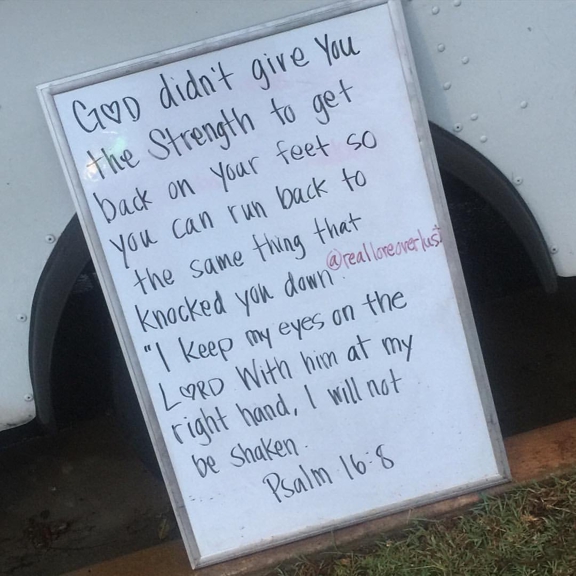 G♡D didn't give you
the Strength to get
back on your feet so
you can run back to
the same thing that
knocked you down.
@realloveoverlust
"I keep my eyes on the
L♡RD With him at my
right hand, I will not
be shaken.
Psalm 16:8